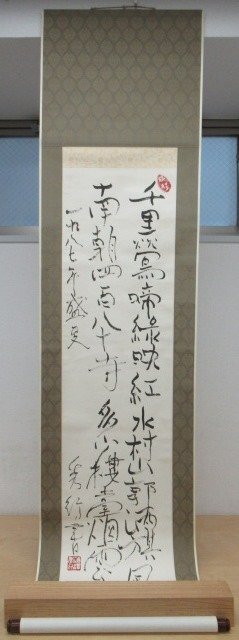 千里鶯啼綠映紅水村山郭酒旗風
南朝四百八十寺多少樓臺煙雨中
一九八七年盛夏
書